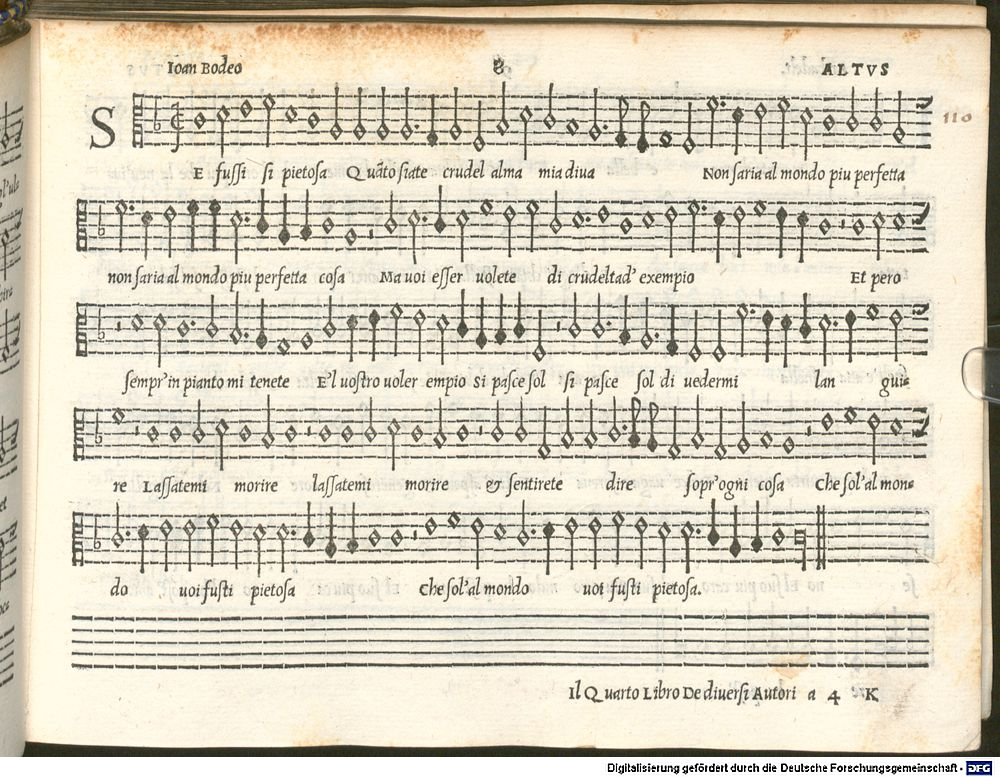 Ioan Bodeo 8 ALTVS
110
SE fussi si pietosa Quãto siate crudel alma mia diua Non saria al mondo piu perfetta
non saria al mondo piu perfetta cosa Ma uoi esser uolete di crudeltad' exempio Et pero
sempr' in pianto mi tenete E'l uostro uoler empio si pasce sol si pasce sol di uedermi lan gui-
re Lassatemi morire lassatemi morire & sentirete dire sopr' ogni cosa Che sol' al mon-
do uoi fusti pietosa Che sol' al mondo uoi fusti pietosa.
Il Quarto Libro De diuersi Autori a 4 K
Digitalisierung gefördert durch die Deutsche Forschungsgemeinschaft - DFG